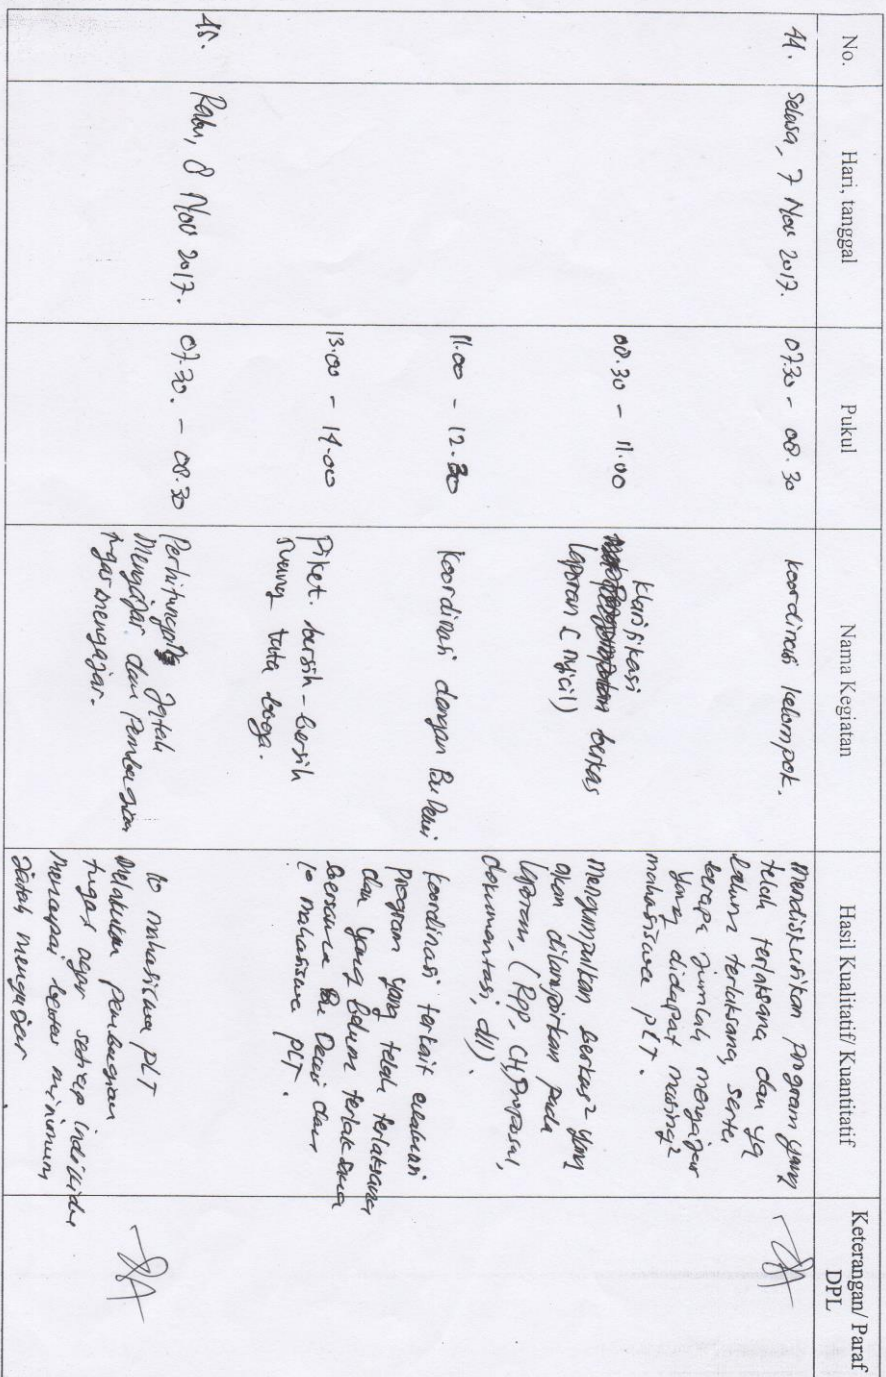 No.
Hari, tanggal
Pukul
Nama Kegiatan
Hasil Kualitatif/ Kuantitatif
Keterangan/ Paraf
DPL
44.
Selasa, 7 Nov 2017.
07.30 - 08.30
koordinasi kelompok.
Mendiskusikan program yang
telah terlaksana dan yg
belum terlaksana, serta
berapa jumlah mengajar
yang didapat masing2
mahasiswa PLT.
08.30 - 11.00
Klarifikasi
berkas
laporan (Nyicil)
Mengumpulkan berkas2 yang
akan dilampirkan pada
laporan, (RPP, CH, Proposal,
dokumentasi, dll).
11.00 - 12.30
koordinasi dengan Bu Dewi
koordinasi terkait evaluasi
program yang telah terlaksana
dan yang belum terlaksana
bersama Bu Dewi dan
10 mahasiswa PLT.
13.00 - 14.00
Piket. bersih-bersih
ruang tata boga.
45.
Rabu, 8 Nov 2017.
07.30. - 08.30
Perhitungan Jatah
Mengajar dan Pembagian
tugas mengajar.
10 mahasiswa PLT
Melakukan pembagian
tugas agar setiap individu
mencapai batas minimum
Jatah mengajar